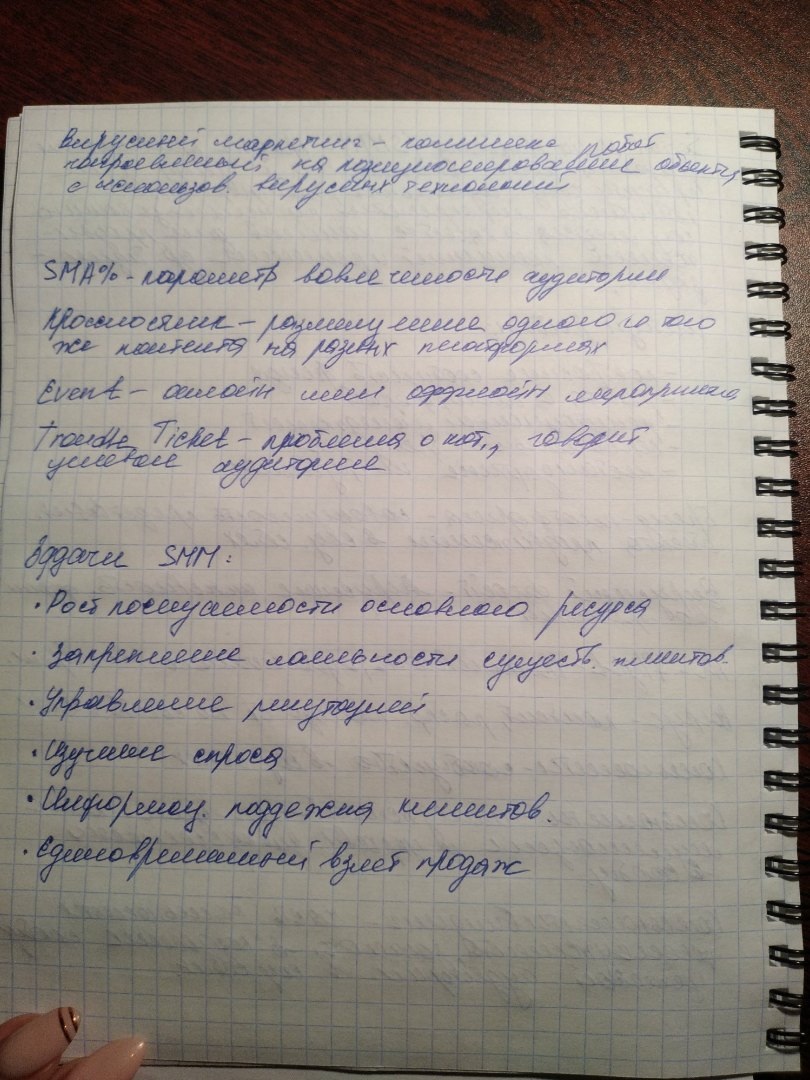 Вирусный маркетинг - комплекс работ
направленный на позиционирование объекта,
с использов. вирусных технологий
SMA% - параметр вовлеченности аудитории
Кросспостинг - размещение одного и того
же контента на разных платформах
Event - онлайн или оффлайн мероприятия
Trouble Ticket - проблема о кот., говорит
целевая аудитория
Задачи SMM:
· Рост посещаемости основного ресурса
· Закрепление лояльности существ. клиентов.
· Управление репутацией
· Изучение спроса
· Информац. поддежка клиентов.
· Единовременный взлет продаж